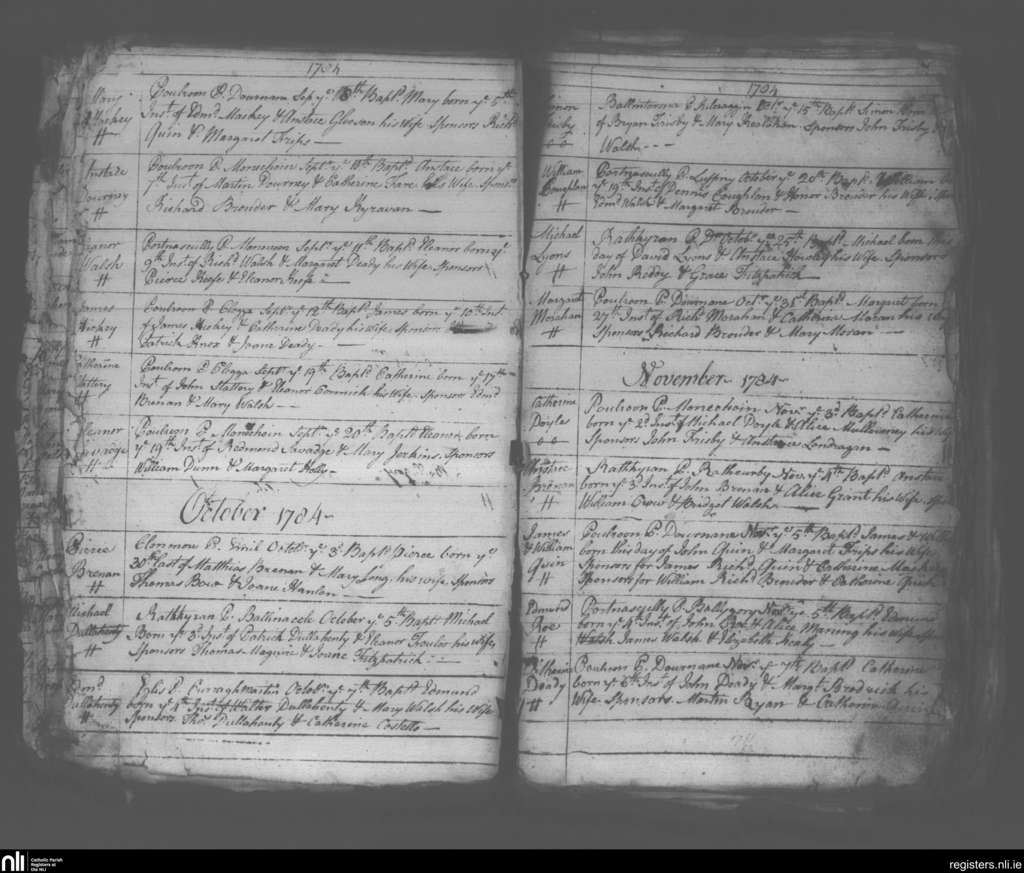 1784
Mary
Mackey
#
Poulroon P. Dournane Sep. ye Bapt. Mary born ye 5th
Inst. of Edmd. Mackey & Anstice Gleeson his Wife Sponsors Richd.
Quin & Margaret Frips
Anstace
Dourney
#
Poulroon P. Monechoin Sept. ye 10th Bapt. Anstace born ye
7th Inst. of Martin Dourney & Catherine Fare his Wife Sponsrs.
Richard Brouder & Mary Kyravan
Eleanor
Walsh
#
Portnascully P. Monereen Sept. ye 11th Bapt. Eleanor born ye
9th Inst. of Richd. Walsh & Margaret Deady his Wife Sponsors
Pierce Keefe & Eleanor Keefe
James
Hickey
#
Poulroon P. Clogga Sept. ye 12th Bapt. James born ye 10th Inst.
of James Hickey & Catherine Deady his wife Sponsors
Patrick Knox & Joane Deady
Catherine
Slattery
#
Poulroon P. Clogga Sept. ye 19th Bapt. Catherine born ye 17th
Inst. of John Slattery & Eleanor Cormick his Wife Sponsor Edmd.
Brenan & Mary Walsh
Eleanor
Savadge
#
Poulroon P. Monechoin Sept. ye 20th Bapt. Eleanor born
ye 19th Inst. of Redmond Savadge & Mary Jerkins Sponsors
William Dunn & Margaret Holly
October 1784
Pierce
Brenan
#
Clonmore P. Emil Octobr. ye 3d Bapt. Pierce born ye
30th last of Matthias Brenan & Mary Long his wife Sponsors
Thomas Bow & Joane Hanlon
Michael
Dullahunty
#
Rathkyran P. Ballinacole October ye 5th Bapt. Michael
Born ye 3d Inst. of Patrick Dullahunty & Eleanor Froulos his Wife
Sponsors Thomas Maguire & Joane Fitzpatrick
Edmd.
Dullahunty
#
P. Curraghmartin Octobr. ye 7th Bapt. Edmund
born ye 4th Inst. of Walter Dullahunty & Mary Walsh his Wife
Sponsors Thos. Dullahunty & Catherine Costello
1784
Simon
Frisby
Ballintarsna P. Kilmaggin Octr. ye 15th Bapt. Simon born
of Bryan Frisby & Mary Sponsors John Frisby
Walsh
William
Coughlan
#
Portnascully P. Luffny October ye 20th Bapt. William
ye 19th Inst. of Dennis Coughlan & Honor Brewer his Wife
Edmd. Walsh & Margaret Brouder
Michael
Lyons
#
Rathkyran P. Do. Octobr. ye 25th Bapt. Michael born this
day of David Lyons & Anstace Howley his Wife Sponsors
John Reddy & Grace Fitzpatrick
Margaret
Morahan
#
Poulroon P. Dournane Octr. ye 31st Bapt. Margaret born
27th Inst. of Richd. Morahan & Catherine Moran his
Sponsors Richard Brouder & Mary Moran
November 1784
Catherine
Doyle
Poulroon P. Monechoin Novr. ye 3d Bapt. Catherine
born ye 2d Inst. of Michael Doyle & Alice Mullowney his Wife
Sponsors John Frisby & Landragan
Anstice
Brenan
#
Rathkyran P. Rathcurby Novr. ye 4th Bapt. Anstice
born ye 3d Inst. of John Brenan & Alice Grant his Wife
William Crow & Bridget Walsh
James
& William
Quin
#
Poulroon P. Dournane Novr. ye 5th Bapt. James &
born this day of John Quin & Margaret Frips his Wife
Sponsors for James Richd. Quin & Catherine Mackey
Sponsors for William Richd. Brouder & Catherine Quirk
Edmund
Roe
#
Portnascully P. Ballygory Novr. ye 5th Bapt. Edmund
born ye 4th Inst. of John Roe & Alice Manning his Wife
James Walsh & Elizabeth Healy
Catherine
Deady
#
Poulroon P. Dournane Novr. ye 7th Bapt. Catherine
born ye 6th Inst. of John Deady & Margt. Brodrick his
Wife Sponsors Martin Ryan & Catherine
nli
Catholic Parish
Registers at
the NLI
registers.nli.ie